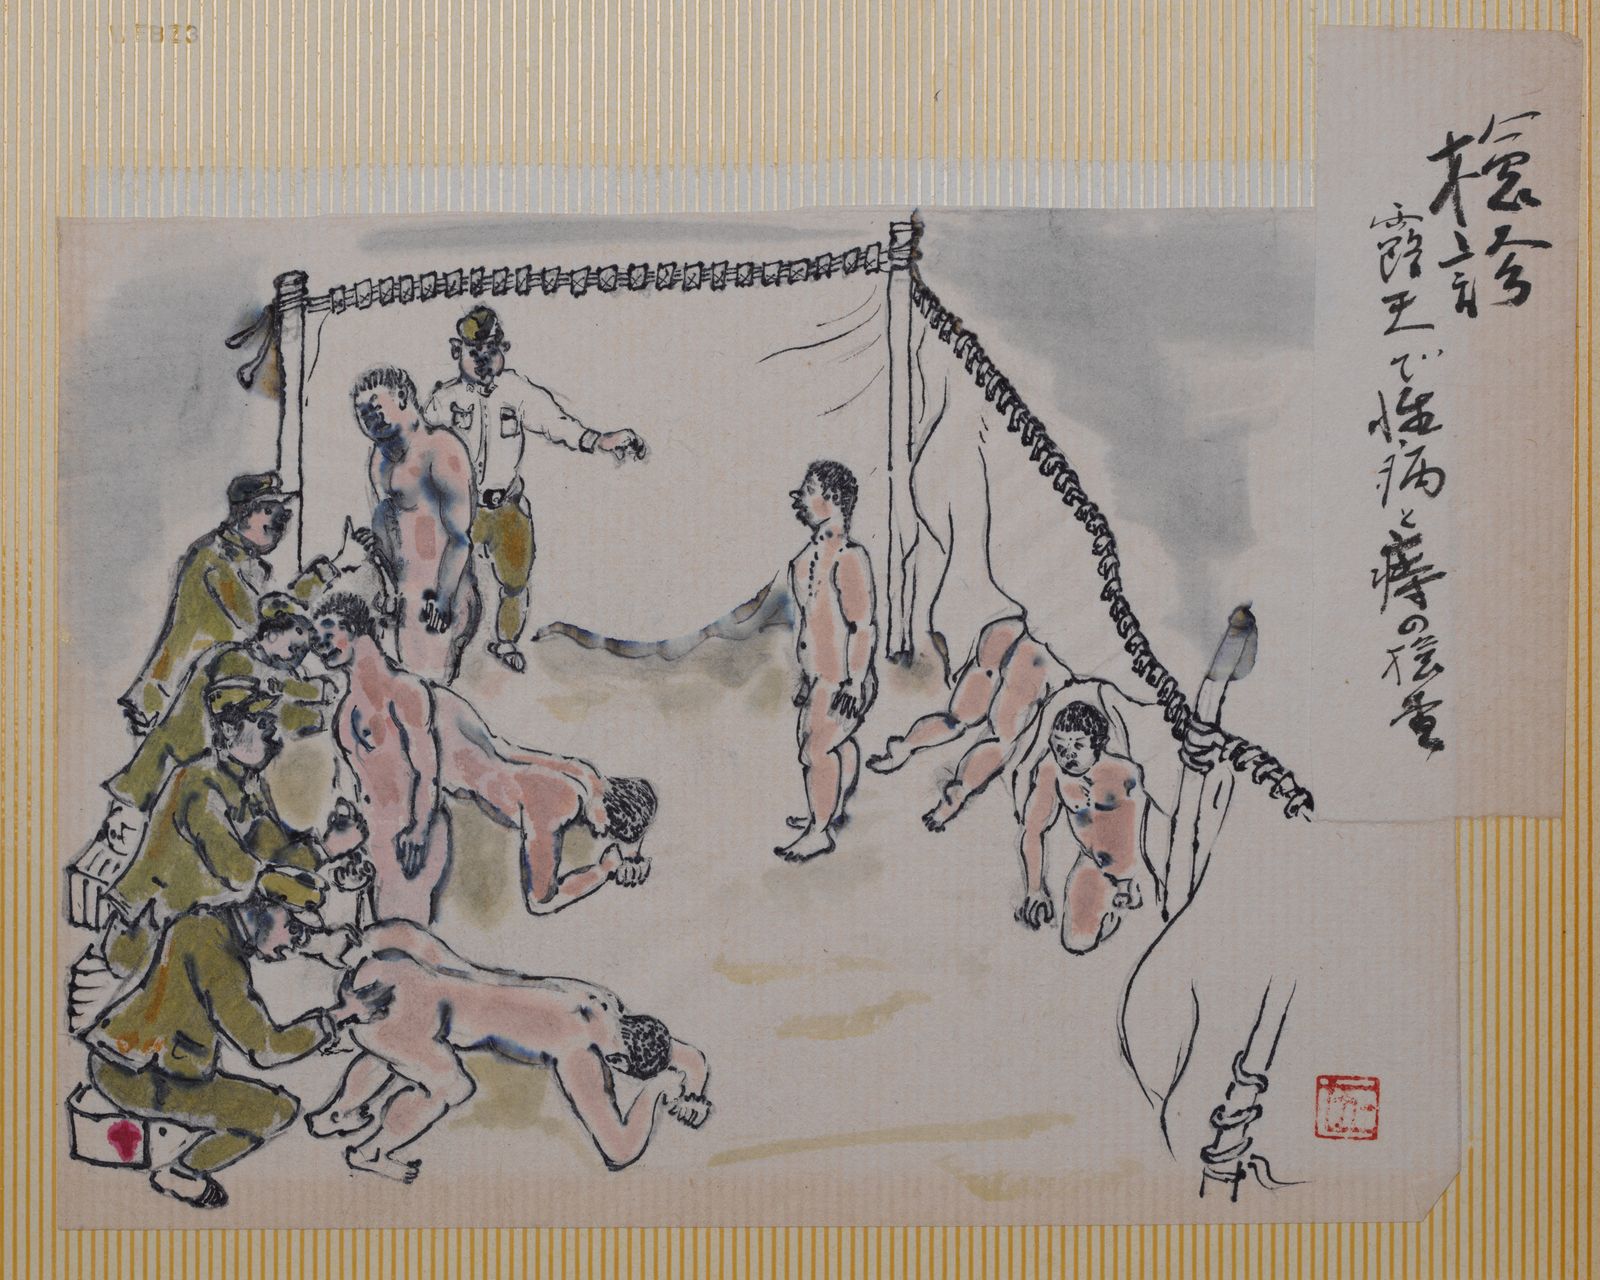 検診
露天で性病と痔の検査